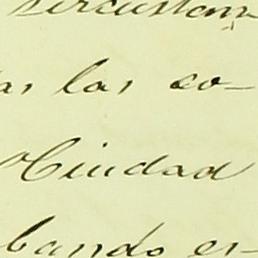 sircustan
as las co-
Ciudad
bando es-